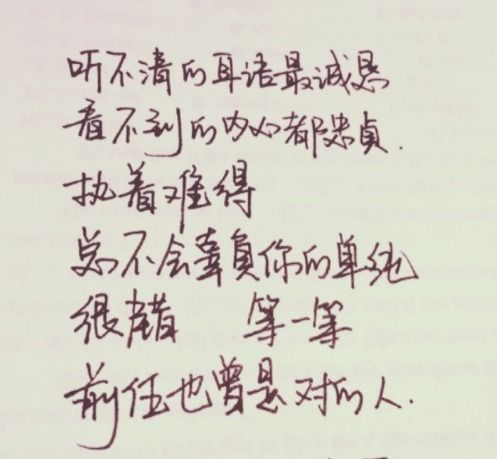 听不清的耳语最诚恳
看不到的内心都忠貞.
执着难得
总不会辜负你的单纯
很错 等一等
前任也曾是对的人.